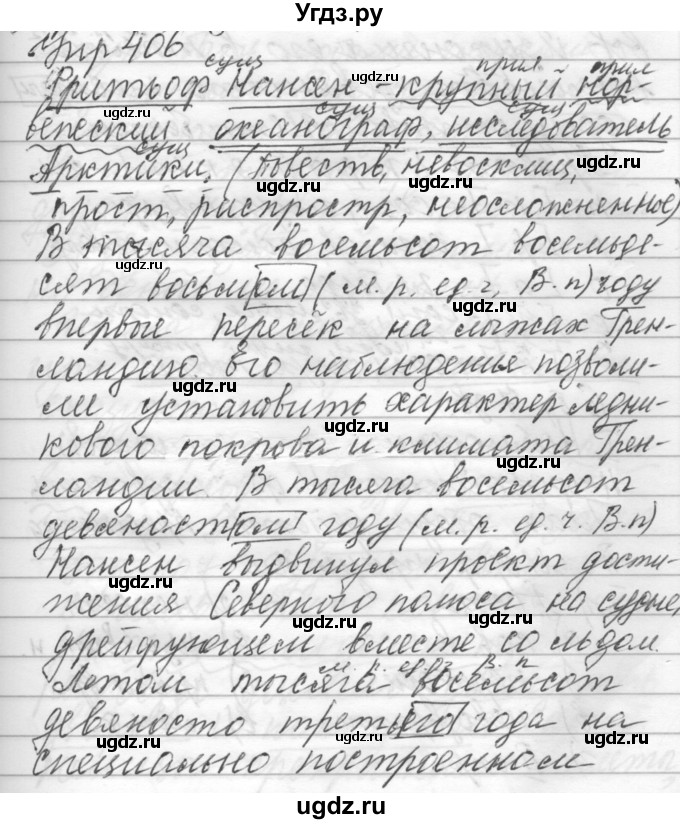 Угдз.ру
Упр 406
сущ прил прил
Фритьоф Нансен - крупный нор-
сущ сущ
вежский океанограф, исследователь
сущ
Арктики. (повеств, невосклиц,
прост, распростр, неосложненное)
В тысяча восемьсот восемьде-
сят восьмом (м. р. ед. ч, В. п) году
впервые пересёк на лыжах Грен-
ландию. Его наблюденья позволи-
ли установить характер ледни-
кового покрова и климата Грен-
ландии. В тысяча восемьсот
девяностом году (м. р. ед. ч. В. п)
Нансен выдвинул проект дости-
жения Северного полюса на судне,
дрейфующем вместе со льдом.
м. р. ед. ч В. п
Летом тысяча восемьсот
девяносто третьего года на
специально построенном
ugdz.ru